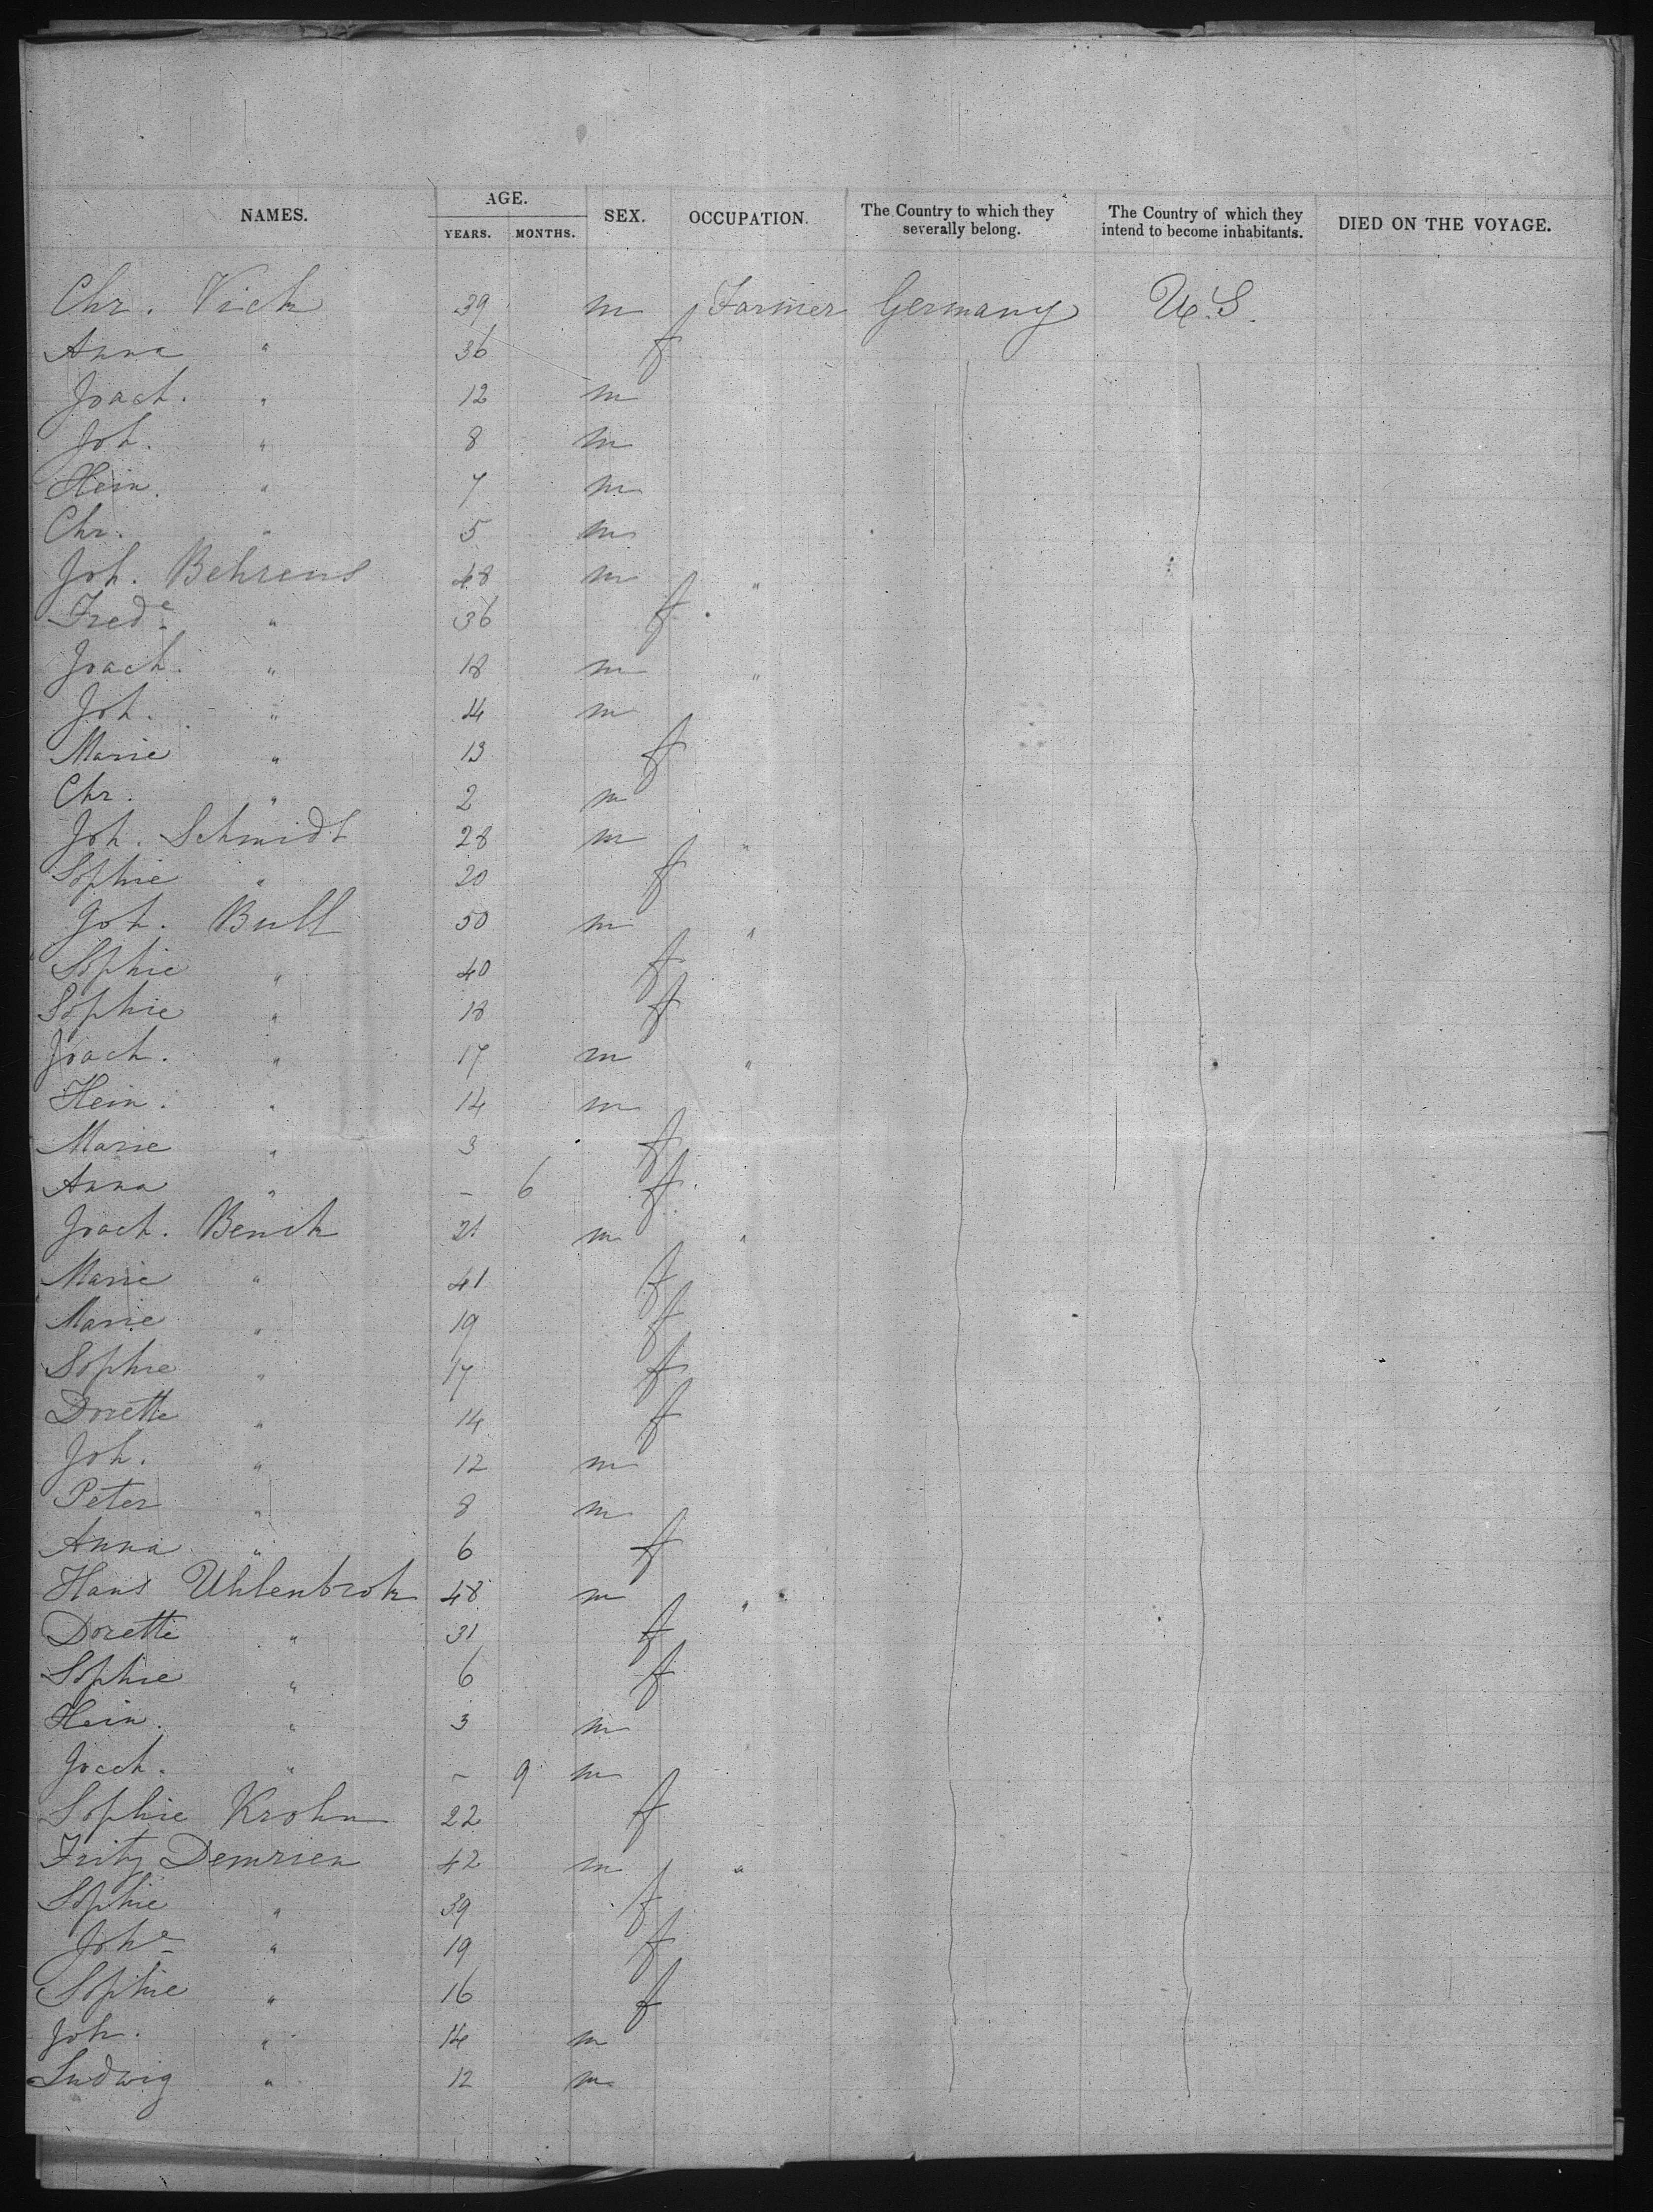 NAMES. AGE. SEX. OCCUPATION. The Country to which they severally belong. The Country of which they intend to become inhabitants. DIED ON THE VOYAGE.
YEARS. MONTHS.
Chr. Vick 39 m Farmer Germany U.S.
Anna " 36 f
Joach. " 12 m
Joh. " 8 m
Hein. " 7 m
Chr. " 5 m
Joh. Behrens 48 m "
Frede " 36 f
Joach. " 18 m "
Joh. " 14 m
Marie " 13 f
Chr. " 2 m
Joh. Schmidt 28 m "
Sophie " 20 f
Joh. Bull 50 m "
Sophie " 40 f
Sophie " 18 f
Joach. " 17 m "
Hein. " 14 m
Marie " 3 f
Anna " - 6 f
Joach. Benck 21 m "
Marie " 41 f
Marie " 19 f
Sophie " 17 f
Dorette " 14 f
Joh. " 12 m
Peter " 8 m
Anna " 6 f
Hans Uhlenbrok 48 m "
Dorette " 31 f
Sophie " 6 f
Hein. " 3 m
Joach. " - 9 m
Sophie Krohn 22 f
Fritz Demrien 42 m "
Sophie " 39 f
Johe " 19 f
Sophie " 16 f
Joh. " 14 m
Ludwig " 12 m